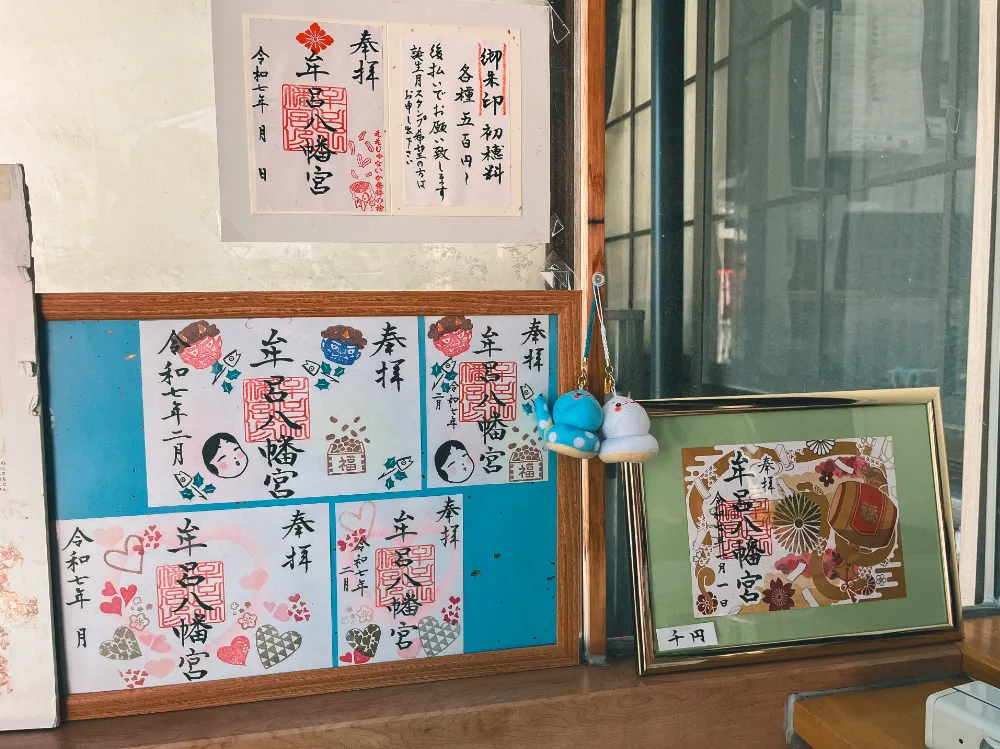 奉拝
牟呂八幡宮
令和七年 月 日
ええじゃないか発祥の地
御朱印 初穂料
各種 五百円~
後払いでお願い致します
誕生月スタンプ希望の方は
お申し出下さい
奉拝
牟呂八幡宮
令和七年二月
福
奉拝
牟呂八幡宮
令和七年
二月
福
奉拝
牟呂八幡宮
令和七年 月
奉拝
牟呂八幡宮
令和七年
二月
奉拝
牟呂八幡宮
福
千円